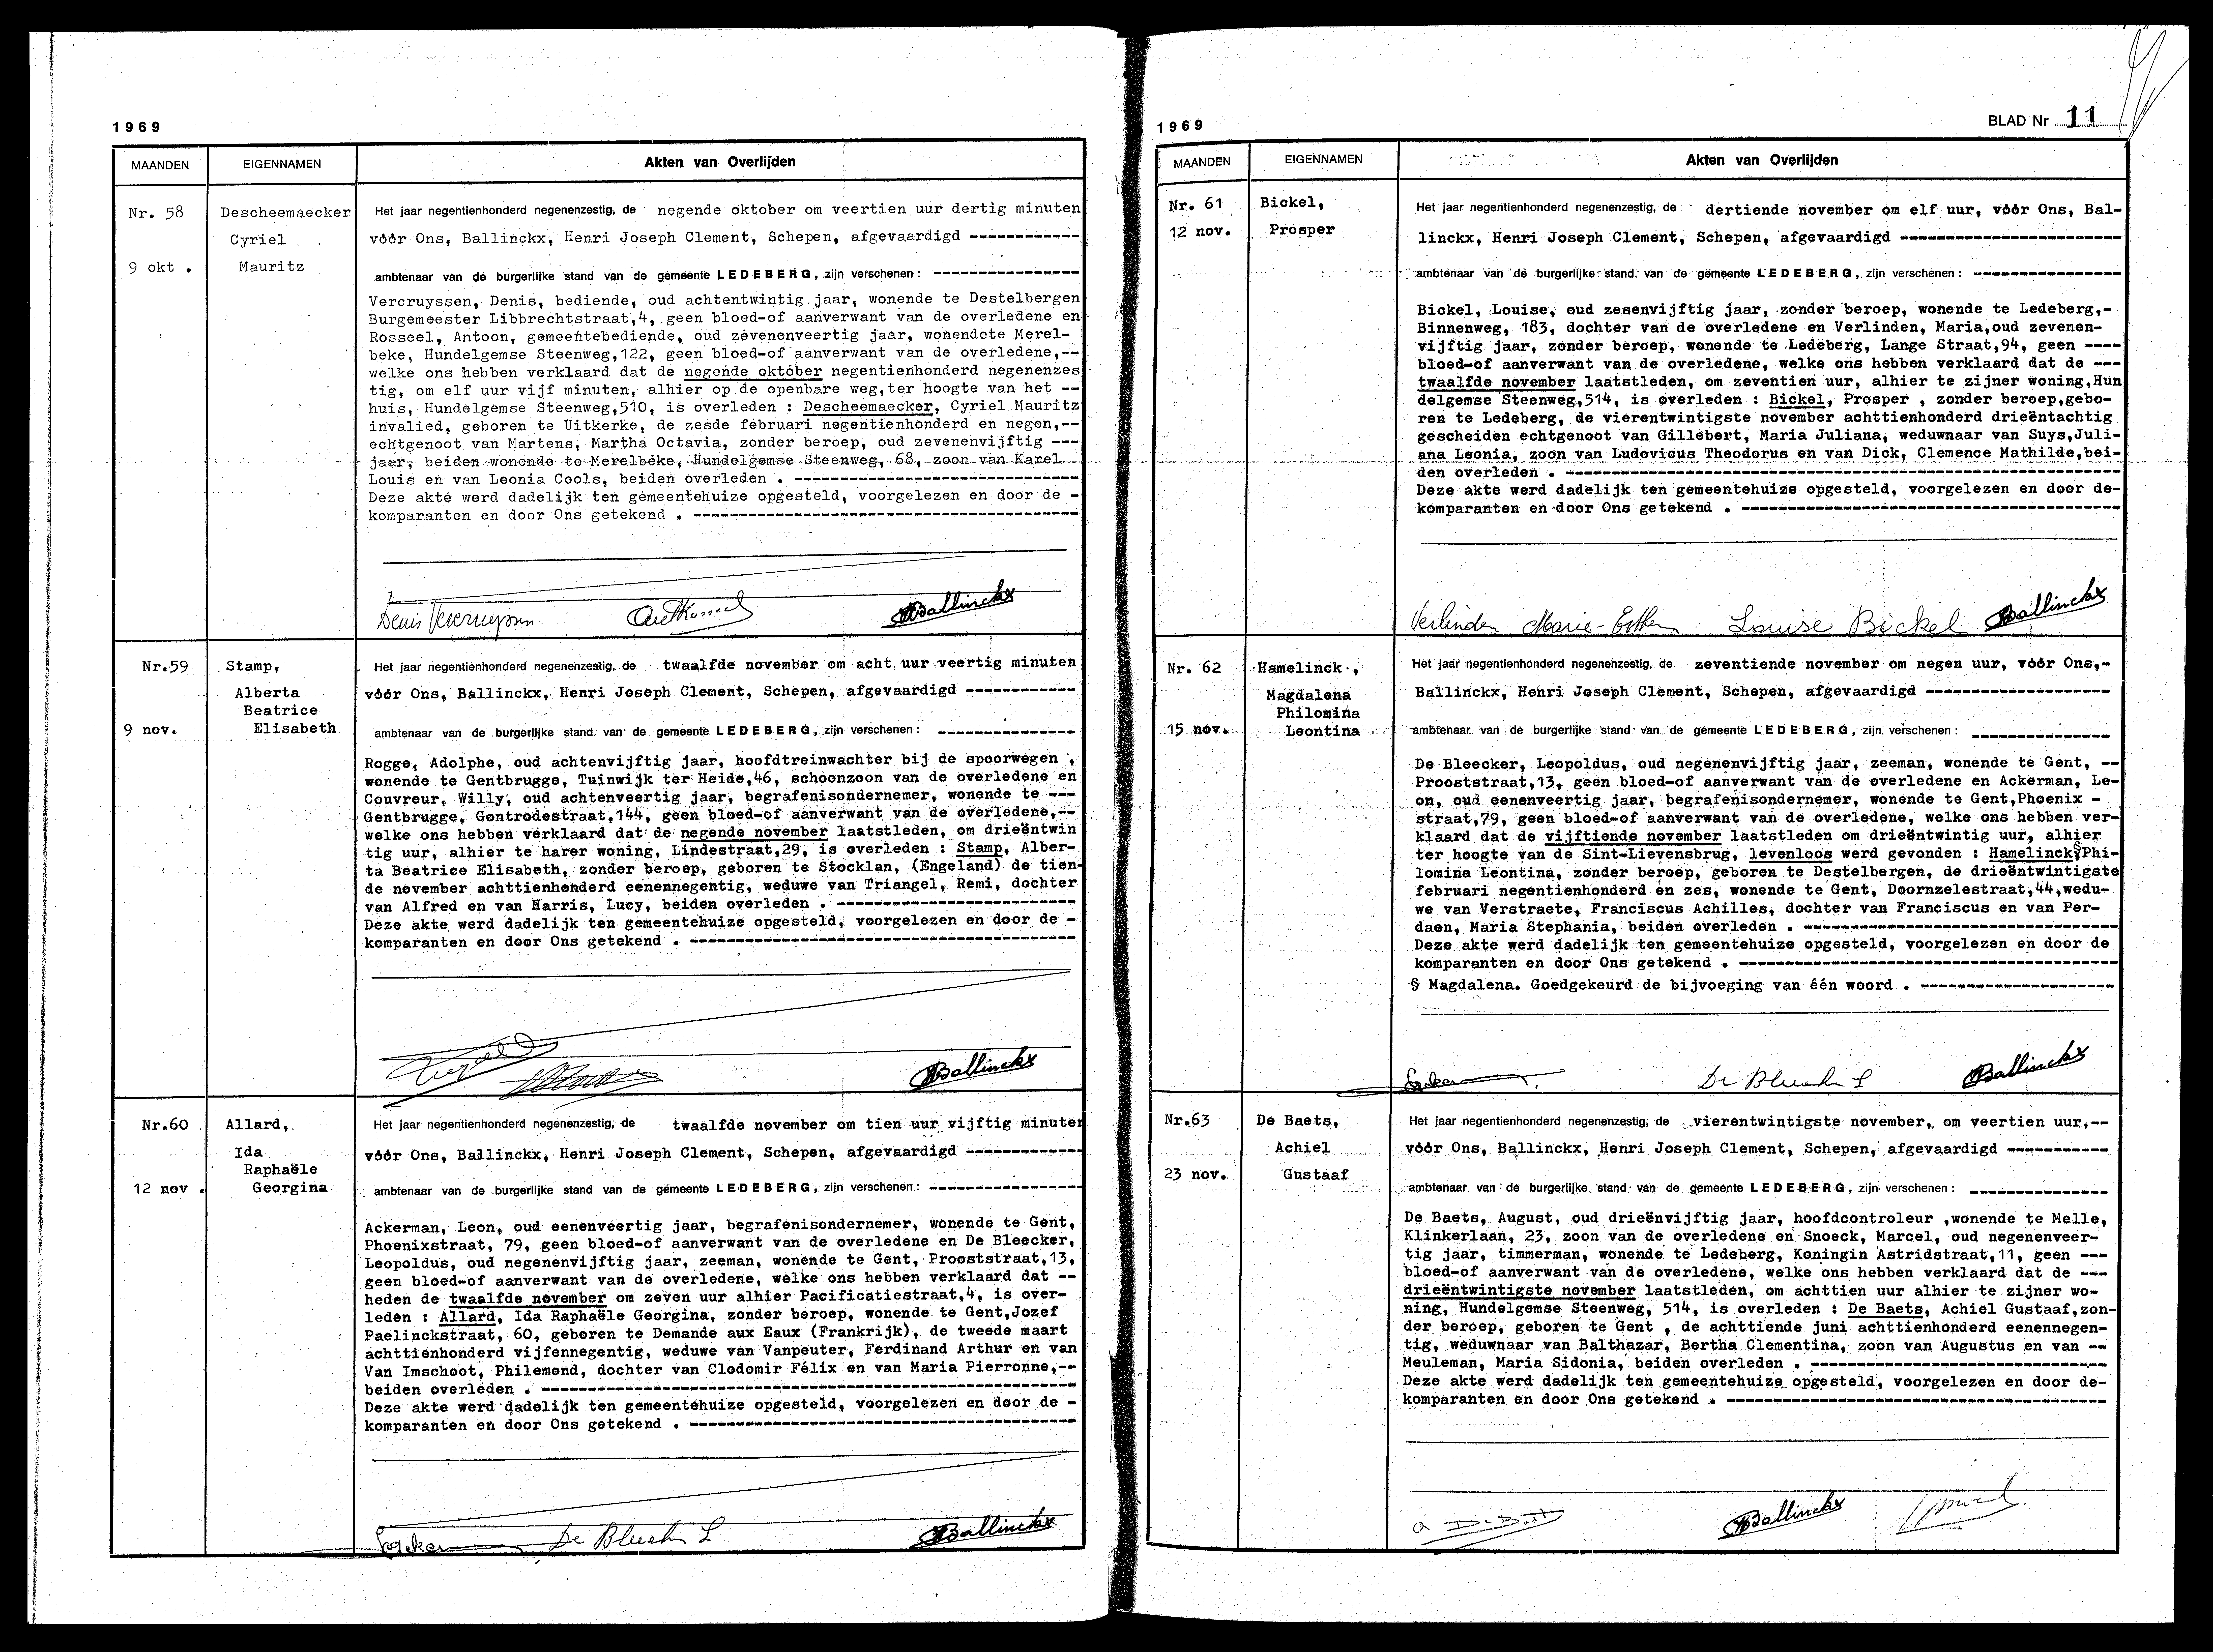 1969
MAANDEN
EIGENNAMEN
Akten van Overlijden
Nr. 58
9 okt .
Descheemaecker
Cyriel
Mauritz
Het jaar negentienhonderd negenenzestig, de negende oktober om veertien uur dertig minuten
vóór Ons, Ballinckx, Henri Joseph Clement, Schepen, afgevaardigd ------------
ambtenaar van de burgerlijke stand van de gemeente LEDEBERG, zijn verschenen : ----------------
Vercruyssen, Denis, bediende, oud achtentwintig jaar, wonende te Destelbergen
Burgemeester Libbrechtstraat,4, geen bloed-of aanverwant van de overledene en
Rosseel, Antoon, gemeentebediende, oud zevenenveertig jaar, wonendete Merel-
beke, Hundelgemse Steenweg,122, geen bloed-of aanverwant van de overledene,--
welke ons hebben verklaard dat de negende oktober negentienhonderd negenenzes
tig, om elf uur vijf minuten, alhier op de openbare weg,ter hoogte van het --
huis, Hundelgemse Steenweg,510, is overleden : Descheemaecker, Cyriel Mauritz
invalied, geboren te Uitkerke, de zesde februari negentienhonderd en negen,--
echtgenoot van Martens, Martha Octavia, zonder beroep, oud zevenenvijftig ---
jaar, beiden wonende te Merelbeke, Hundelgemse Steenweg, 68, zoon van Karel
Louis en van Leonia Cools, beiden overleden . -------------------------------
Deze akte werd dadelijk ten gemeentehuize opgesteld, voorgelezen en door de -
komparanten en door Ons getekend . ------------------------------------------
Denis Vercruyssen
Ballinckx
Nr.59
9 nov.
Stamp,
Alberta
Beatrice
Elisabeth
Het jaar negentienhonderd negenenzestig, de twaalfde november om acht uur veertig minuten
vóór Ons, Ballinckx, Henri Joseph Clement, Schepen, afgevaardigd ------------
ambtenaar van de burgerlijke stand van de gemeente LEDEBERG, zijn verschenen : ---------------
Rogge, Adolphe, oud achtenvijftig jaar, hoofdtreinwachter bij de spoorwegen ,
wonende te Gentbrugge, Tuinwijk ter Heide,46, schoonzoon van de overledene en
Couvreur, Willy, oud achtenveertig jaar, begrafenisondernemer, wonende te ---
Gentbrugge, Gontrodestraat,144, geen bloed-of aanverwant van de overledene,--
welke ons hebben verklaard dat de negende november laatstleden, om drieëntwin
tig uur, alhier te harer woning, Lindestraat,29, is overleden : Stamp, Alber-
ta Beatrice Elisabeth, zonder beroep, geboren te Stocklan, (Engeland) de tien-
de november achttienhonderd eenennegentig, weduwe van Triangel, Remi, dochter
van Alfred en van Harris, Lucy, beiden overleden . --------------------------
Deze akte werd dadelijk ten gemeentehuize opgesteld, voorgelezen en door de -
komparanten en door Ons getekend . ------------------------------------------
Ballinckx
Nr.60
12 nov .
Allard,
Ida
Raphaële
Georgina
Het jaar negentienhonderd negenenzestig, de twaalfde november om tien uur vijftig minuten
vóór Ons, Ballinckx, Henri Joseph Clement, Schepen, afgevaardigd -------------
ambtenaar van de burgerlijke stand van de gemeente LEDEBERG, zijn verschenen : -----------------
Ackerman, Leon, oud eenenveertig jaar, begrafenisondernemer, wonende te Gent,
Phoenixstraat, 79, geen bloed-of aanverwant van de overledene en De Bleecker,
Leopoldus, oud negenenvijftig jaar, zeeman, wonende te Gent, Prooststraat,13,
geen bloed-of aanverwant van de overledene, welke ons hebben verklaard dat --
heden de twaalfde november om zeven uur alhier Pacificatiestraat,4, is over-
leden : Allard, Ida Raphaële Georgina, zonder beroep, wonende te Gent,Jozef
Paelinckstraat, 60, geboren te Demande aux Eaux (Frankrijk), de tweede maart
achttienhonderd vijfennegentig, weduwe van Vanpeuter, Ferdinand Arthur en van
Van Imschoot, Philemond, dochter van Clodomir Félix en van Maria Pierronne,--
beiden overleden . ----------------------------------------------------------
Deze akte werd dadelijk ten gemeentehuize opgesteld, voorgelezen en door de -
komparanten en door Ons getekend . ------------------------------------------
De Bleecker L
Ballinckx
1969
BLAD Nr 11
MAANDEN
EIGENNAMEN
Akten van Overlijden
Nr. 61
12 nov.
Bickel,
Prosper
Het jaar negentienhonderd negenenzestig, de dertiende november om elf uur, vóór Ons, Bal-
linckx, Henri Joseph Clement, Schepen, afgevaardigd ------------------------
ambtenaar van de burgerlijke stand van de gemeente LEDEBERG, zijn verschenen : ----------------
Bickel, Louise, oud zesenvijftig jaar, zonder beroep, wonende te Ledeberg,-
Binnenweg, 183, dochter van de overledene en Verlinden, Maria,oud zevenen-
vijftig jaar, zonder beroep, wonende te Ledeberg, Lange Straat,94, geen ----
bloed-of aanverwant van de overledene, welke ons hebben verklaard dat de ---
twaalfde november laatstleden, om zeventien uur, alhier te zijner woning,Hun
delgemse Steenweg,514, is overleden : Bickel, Prosper , zonder beroep,gebo-
ren te Ledeberg, de vierentwintigste november achttienhonderd drieëntachtig
gescheiden echtgenoot van Gillebert, Maria Juliana, weduwnaar van Suys,Juli-
ana Leonia, zoon van Ludovicus Theodorus en van Dick, Clemence Mathilde,bei-
den overleden . ------------------------------------------------------------
Deze akte werd dadelijk ten gemeentehuize opgesteld, voorgelezen en door de-
komparanten en door Ons getekend . -----------------------------------------
Verlinden Marie-Esther
Louise Bickel
Ballinckx
Nr. 62
15 nov.
Hamelinck ,
Magdalena
Philomina
Leontina
Het jaar negentienhonderd negenenzestig, de zeventiende november om negen uur, vóór Ons,-
Ballinckx, Henri Joseph Clement, Schepen, afgevaardigd --------------------
ambtenaar van de burgerlijke stand van de gemeente LEDEBERG, zijn verschenen : ---------------
De Bleecker, Leopoldus, oud negenenvijftig jaar, zeeman, wonende te Gent, --
Prooststraat,13, geen bloed-of aanverwant van de overledene en Ackerman, Le-
on, oud eenenveertig jaar, begrafenisondernemer, wonende te Gent,Phoenix -
straat,79, geen bloed-of aanverwant van de overledene, welke ons hebben ver-
klaard dat de vijftiende november laatstleden om drieëntwintig uur, alhier
ter hoogte van de Sint-Lievensbrug, levenloos werd gevonden : Hamelinck,§Phi-
lomina Leontina, zonder beroep, geboren te Destelbergen, de drieëntwintigste
februari negentienhonderd en zes, wonende te Gent, Doornzelestraat,44,wedu-
we van Verstraete, Franciscus Achilles, dochter van Franciscus en van Per-
daen, Maria Stephania, beiden overleden . ----------------------------------
Deze akte werd dadelijk ten gemeentehuize opgesteld, voorgelezen en door de
komparanten en door Ons getekend . -----------------------------------------
§ Magdalena. Goedgekeurd de bijvoeging van één woord . ---------------------
De Bleecker L
Ballinckx
Nr.63
23 nov.
De Baets,
Achiel
Gustaaf
Het jaar negentienhonderd negenenzestig, de vierentwintigste november, om veertien uur,--
vóór Ons, Ballinckx, Henri Joseph Clement, Schepen, afgevaardigd -----------
ambtenaar van de burgerlijke stand van de gemeente LEDEBERG, zijn verschenen : ---------------
De Baets, August, oud drieënvijftig jaar, hoofdcontroleur ,wonende te Melle,
Klinkerlaan, 23, zoon van de overledene en Snoeck, Marcel, oud negenenveer-
tig jaar, timmerman, wonende te Ledeberg, Koningin Astridstraat,11, geen ---
bloed-of aanverwant van de overledene, welke ons hebben verklaard dat de ---
drieëntwintigste november laatstleden, om achttien uur alhier te zijner wo-
ning, Hundelgemse Steenweg, 514, is overleden : De Baets, Achiel Gustaaf,zon-
der beroep, geboren te Gent , de achttiende juni achttienhonderd eenennegen-
tig, weduwnaar van Balthazar, Bertha Clementina, zoon van Augustus en van --
Meuleman, Maria Sidonia, beiden overleden . --------------------------------
Deze akte werd dadelijk ten gemeentehuize opgesteld, voorgelezen en door de-
komparanten en door Ons getekend . -----------------------------------------
Ballinckx